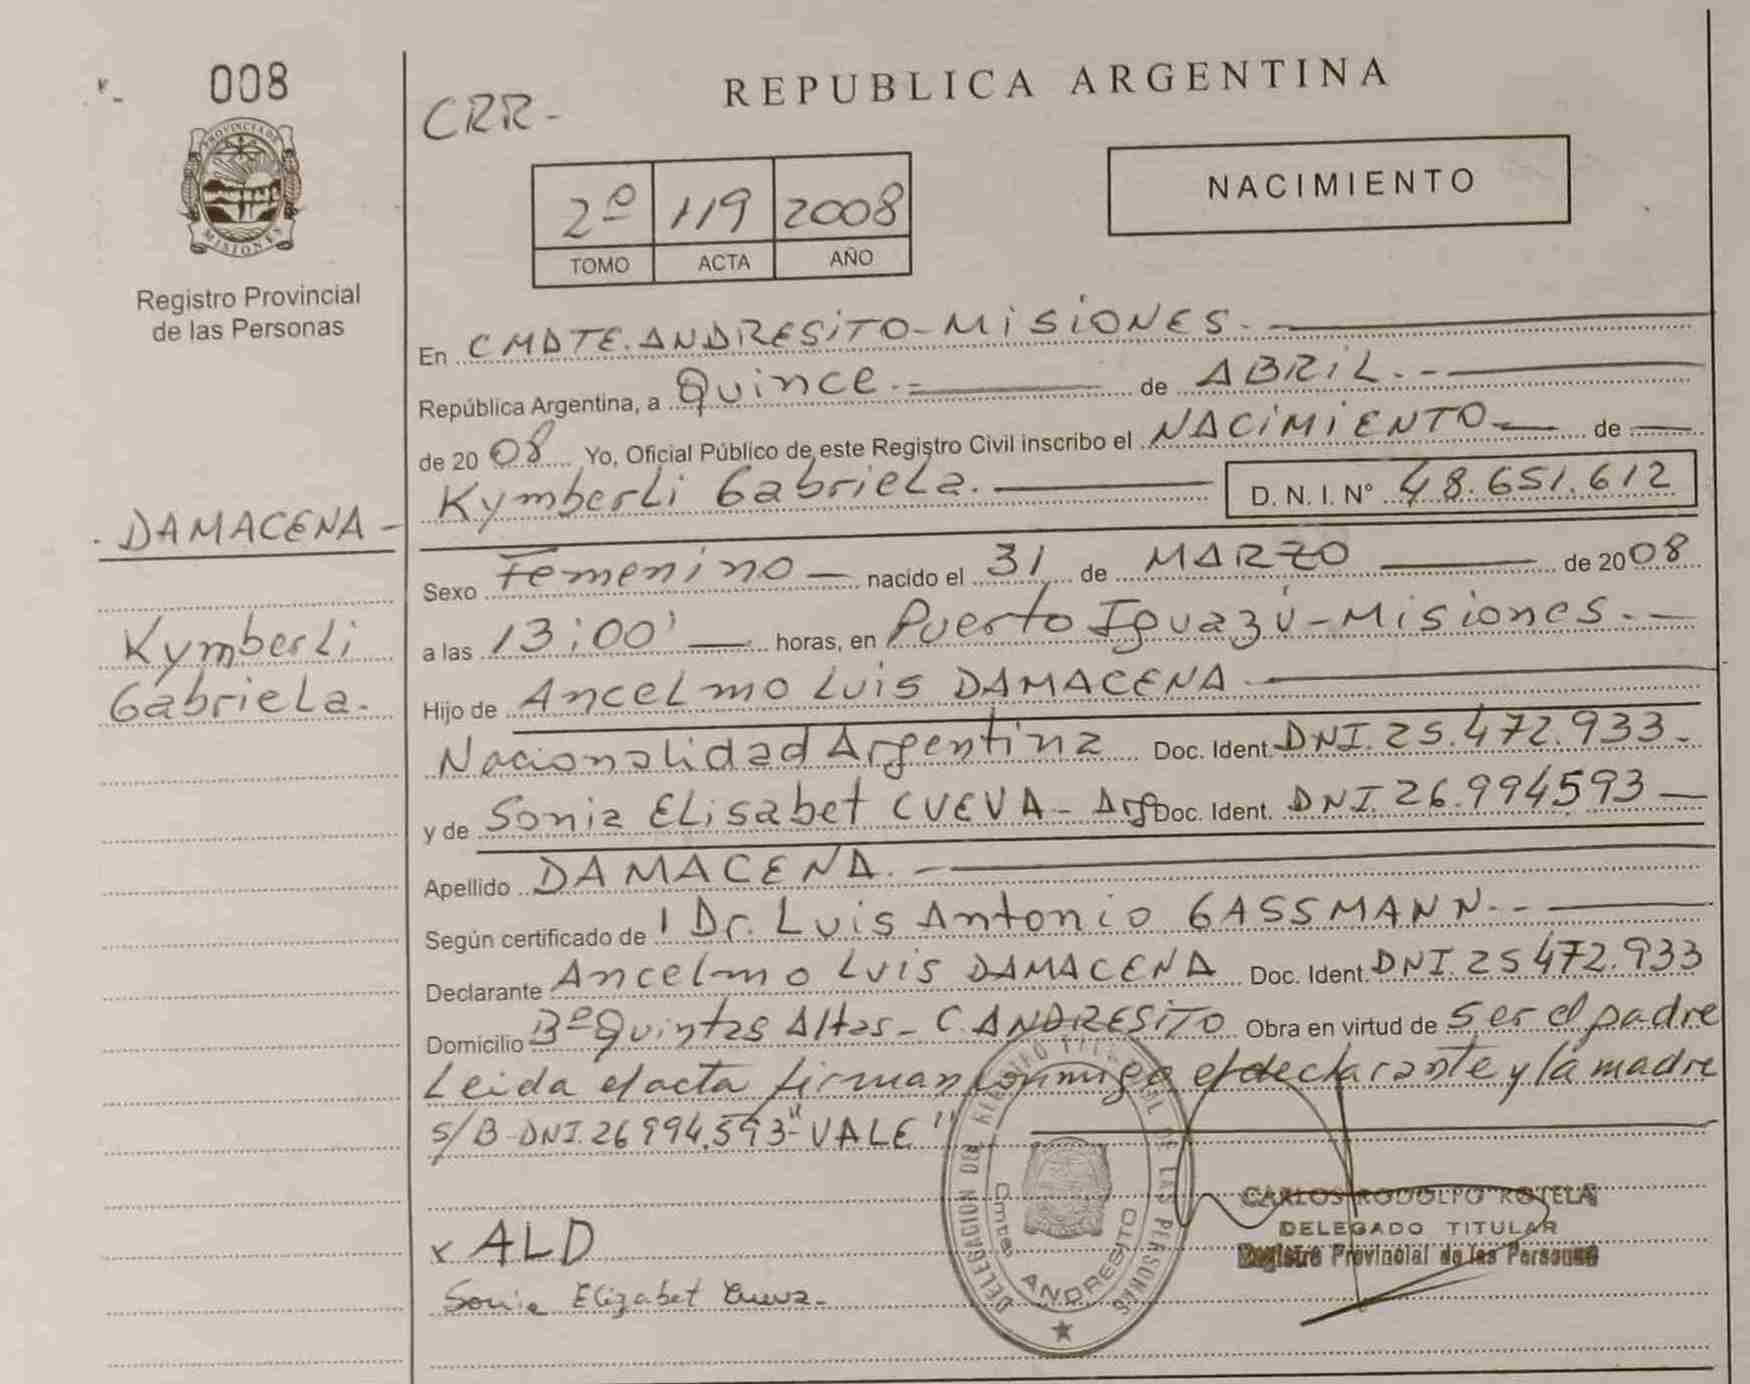 008
PROVINCIA DE
MISIONES
Registro Provincial
de las Personas
DAMACENA -
Kymberli
Gabriela.
CRR-
REPUBLICA ARGENTINA
2º 119 2008
TOMO ACTA AÑO
NACIMIENTO
En CMDTE. ANDRESITO - MISIONES.
República Argentina, a Quince.- de ABRIL.-
de 2008 Yo, Oficial Público de este Registro Civil inscribo el NACIMIENTO de
Kymberli Gabriela. D. N. I. Nº 48.651.612
Sexo Femenino nacido el 31 de MARZO de 2008
a las 13:00' horas, en Puerto Iguazú - Misiones.-
Hijo de Ancelmo Luis DAMACENA
Nacionalidad Argentina Doc. Ident. DNI. 25.472.933.-
y de Sonia Elisabet CUEVA - Arg Doc. Ident. DNI. 26.994593
Apellido DAMACENA.
Según certificado de Dr. Luis Antonio GASSMANN.-
Declarante Ancelmo Luis DAMACENA Doc. Ident. DNI. 25472.933
Domicilio Bº Quintas Altas - C. ANDRESITO Obra en virtud de ser el padre
Leida el acta firman conmigo el declarante y la madre
S/B - DNI. 26994.593 - "VALE"
x ALD
Sonia Elizabet Cueva.
DELEGACION DEL REGISTRO DE LAS PERSONAS
Cmte. ANDRESITO
CARLOS RODOLFO ROTELA
DELEGADO TITULAR
Registro Provincial de las Personas